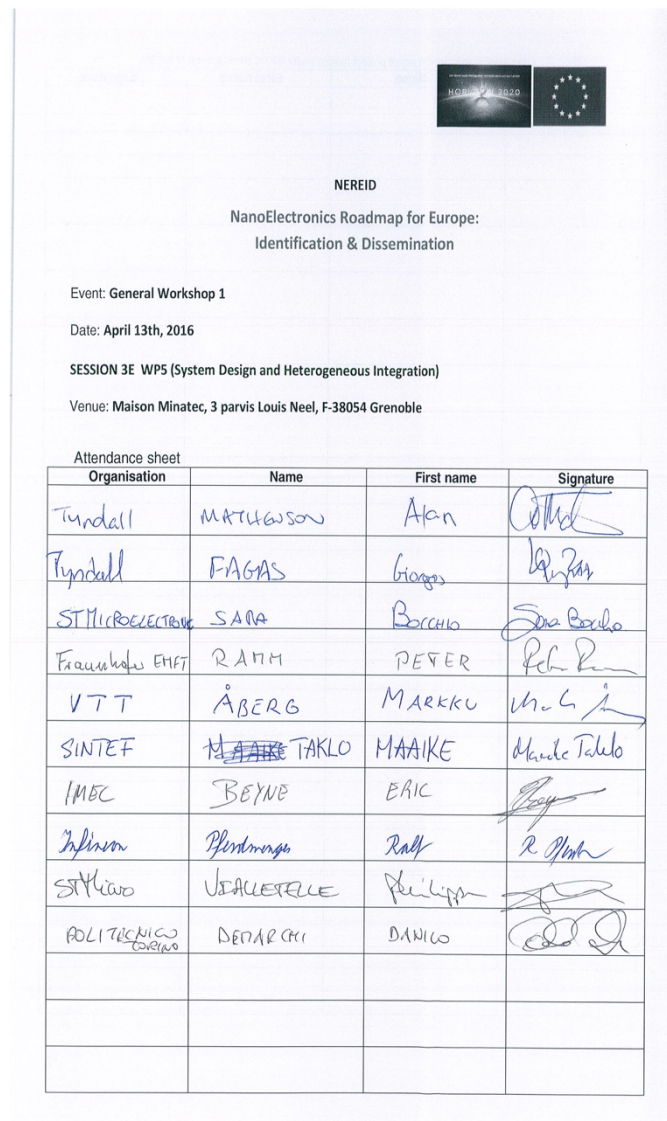 HORIZON 2020
NEREID
NanoElectronics Roadmap for Europe:
Identification & Dissemination
Event: General Workshop 1
Date: April 13th, 2016
SESSION 3E WP5 (System Design and Heterogeneous Integration)
Venue: Maison Minatec, 3 parvis Louis Neel, F-38054 Grenoble
Attendance sheet
Organisation Name First name Signature
Tyndall MATHEWSON Alan
Tyndall FAGAS Giorgos
STMICROELECTRONIC SARA BOCCHIO Sara Bocchio
Fraunhofer EMFT RAMM PETER
VTT ÅBERG MARKKU
SINTEF TAKLO MAAIKE Maaike Taklo
IMEC BEYNE ERIC
Infineon Ralf
STMicro VIALLETELLE Philippe
POLITECNICO TORINO DEMARCHI DANILO